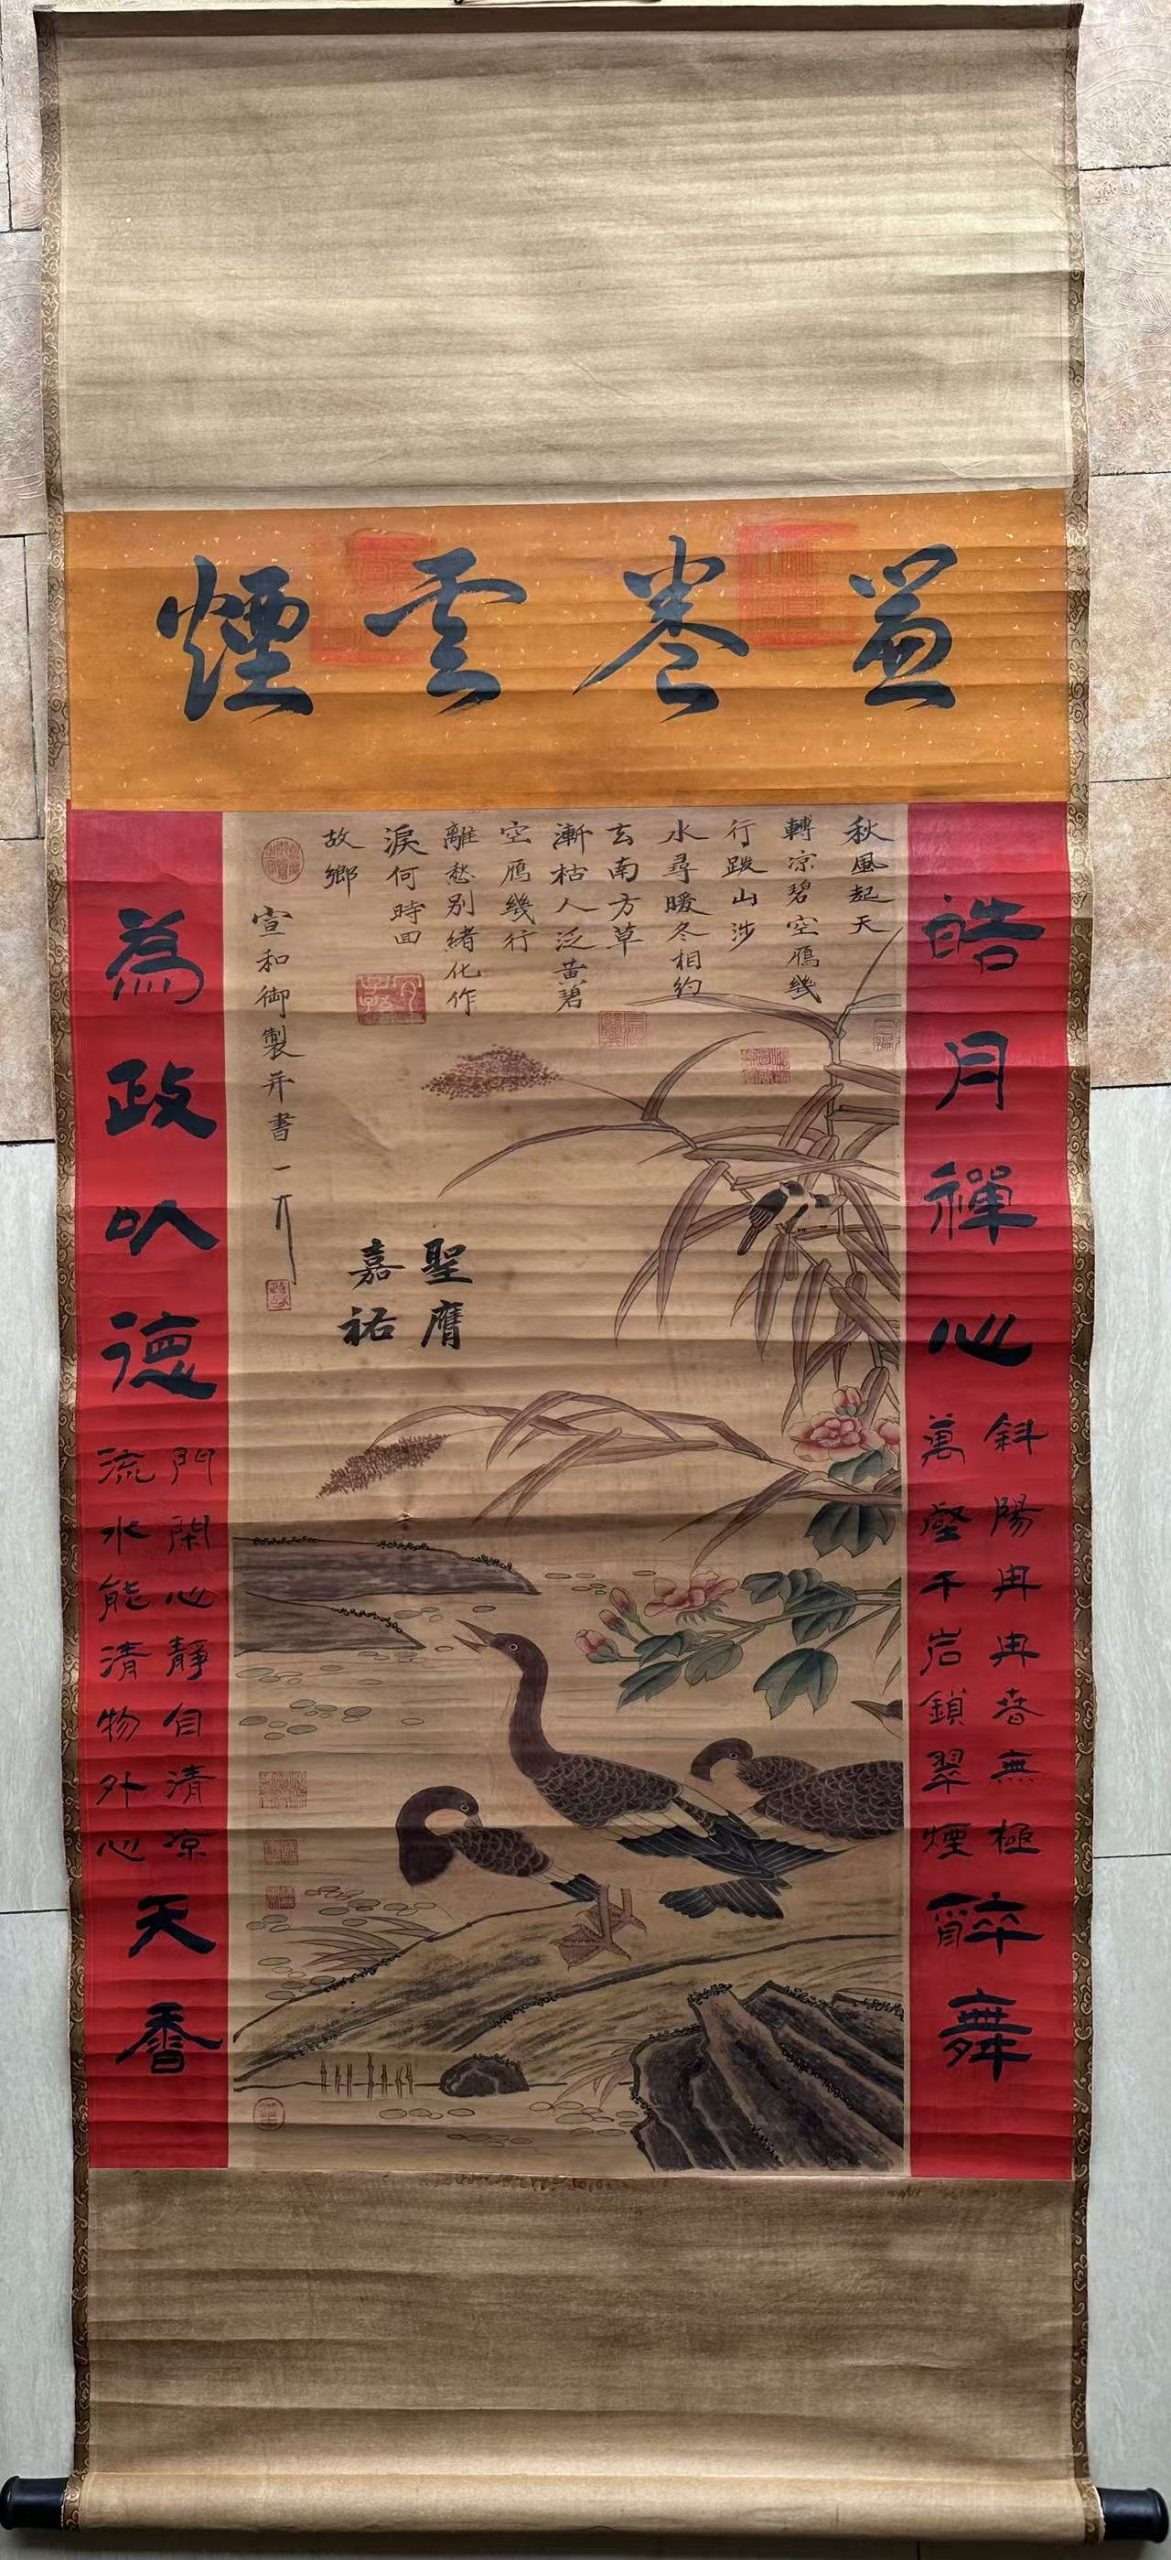 益卷云煙
秋風起天
轉凉碧空鴈幾
行跋山涉
水尋暖冬相約
去南方草
漸枯人泛黃碧
空鴈幾行
離愁別緒化作
淚何時回
故鄉
宣和御製并書
聖膺
嘉祐
皓月禪心
斜陽冉冉春無極
萬壑千岩鎖翠煙
醉舞
為政以德
門閑心靜自清凉
流水能清物外心
天香